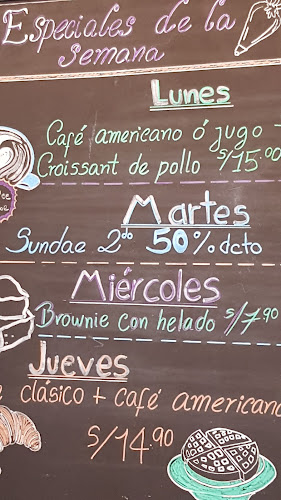 Especiales de la
semana
Lunes
Café americano ó jugo +
Croissant de pollo S/15.00
Martes
Sundae 2do 50% dcto
Miércoles
Brownie con helado S/7.90
Jueves
clásico + café americano
S/14.90